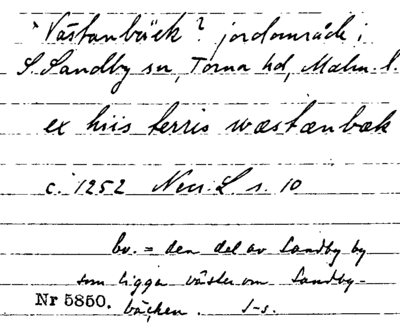 "Västanbäck"? jordområde i
S. Sandby sn, Torna hd, Malm. l.
ex hiis terris wæstænbæk
c. 1252 Necr. L s. 10
bv. = den del av Sandby by
som ligga väster om Sandby-
Nr 5850. bäcken. J-s.